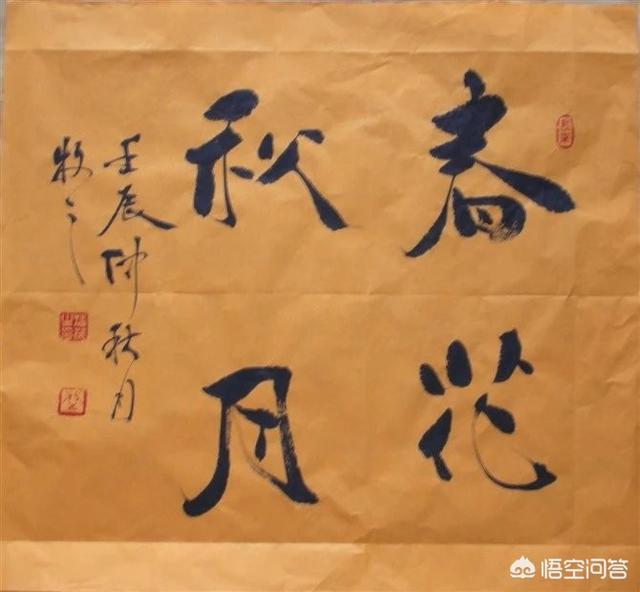 春花
秋月
壬辰仲秋月
牧之
悟空问答